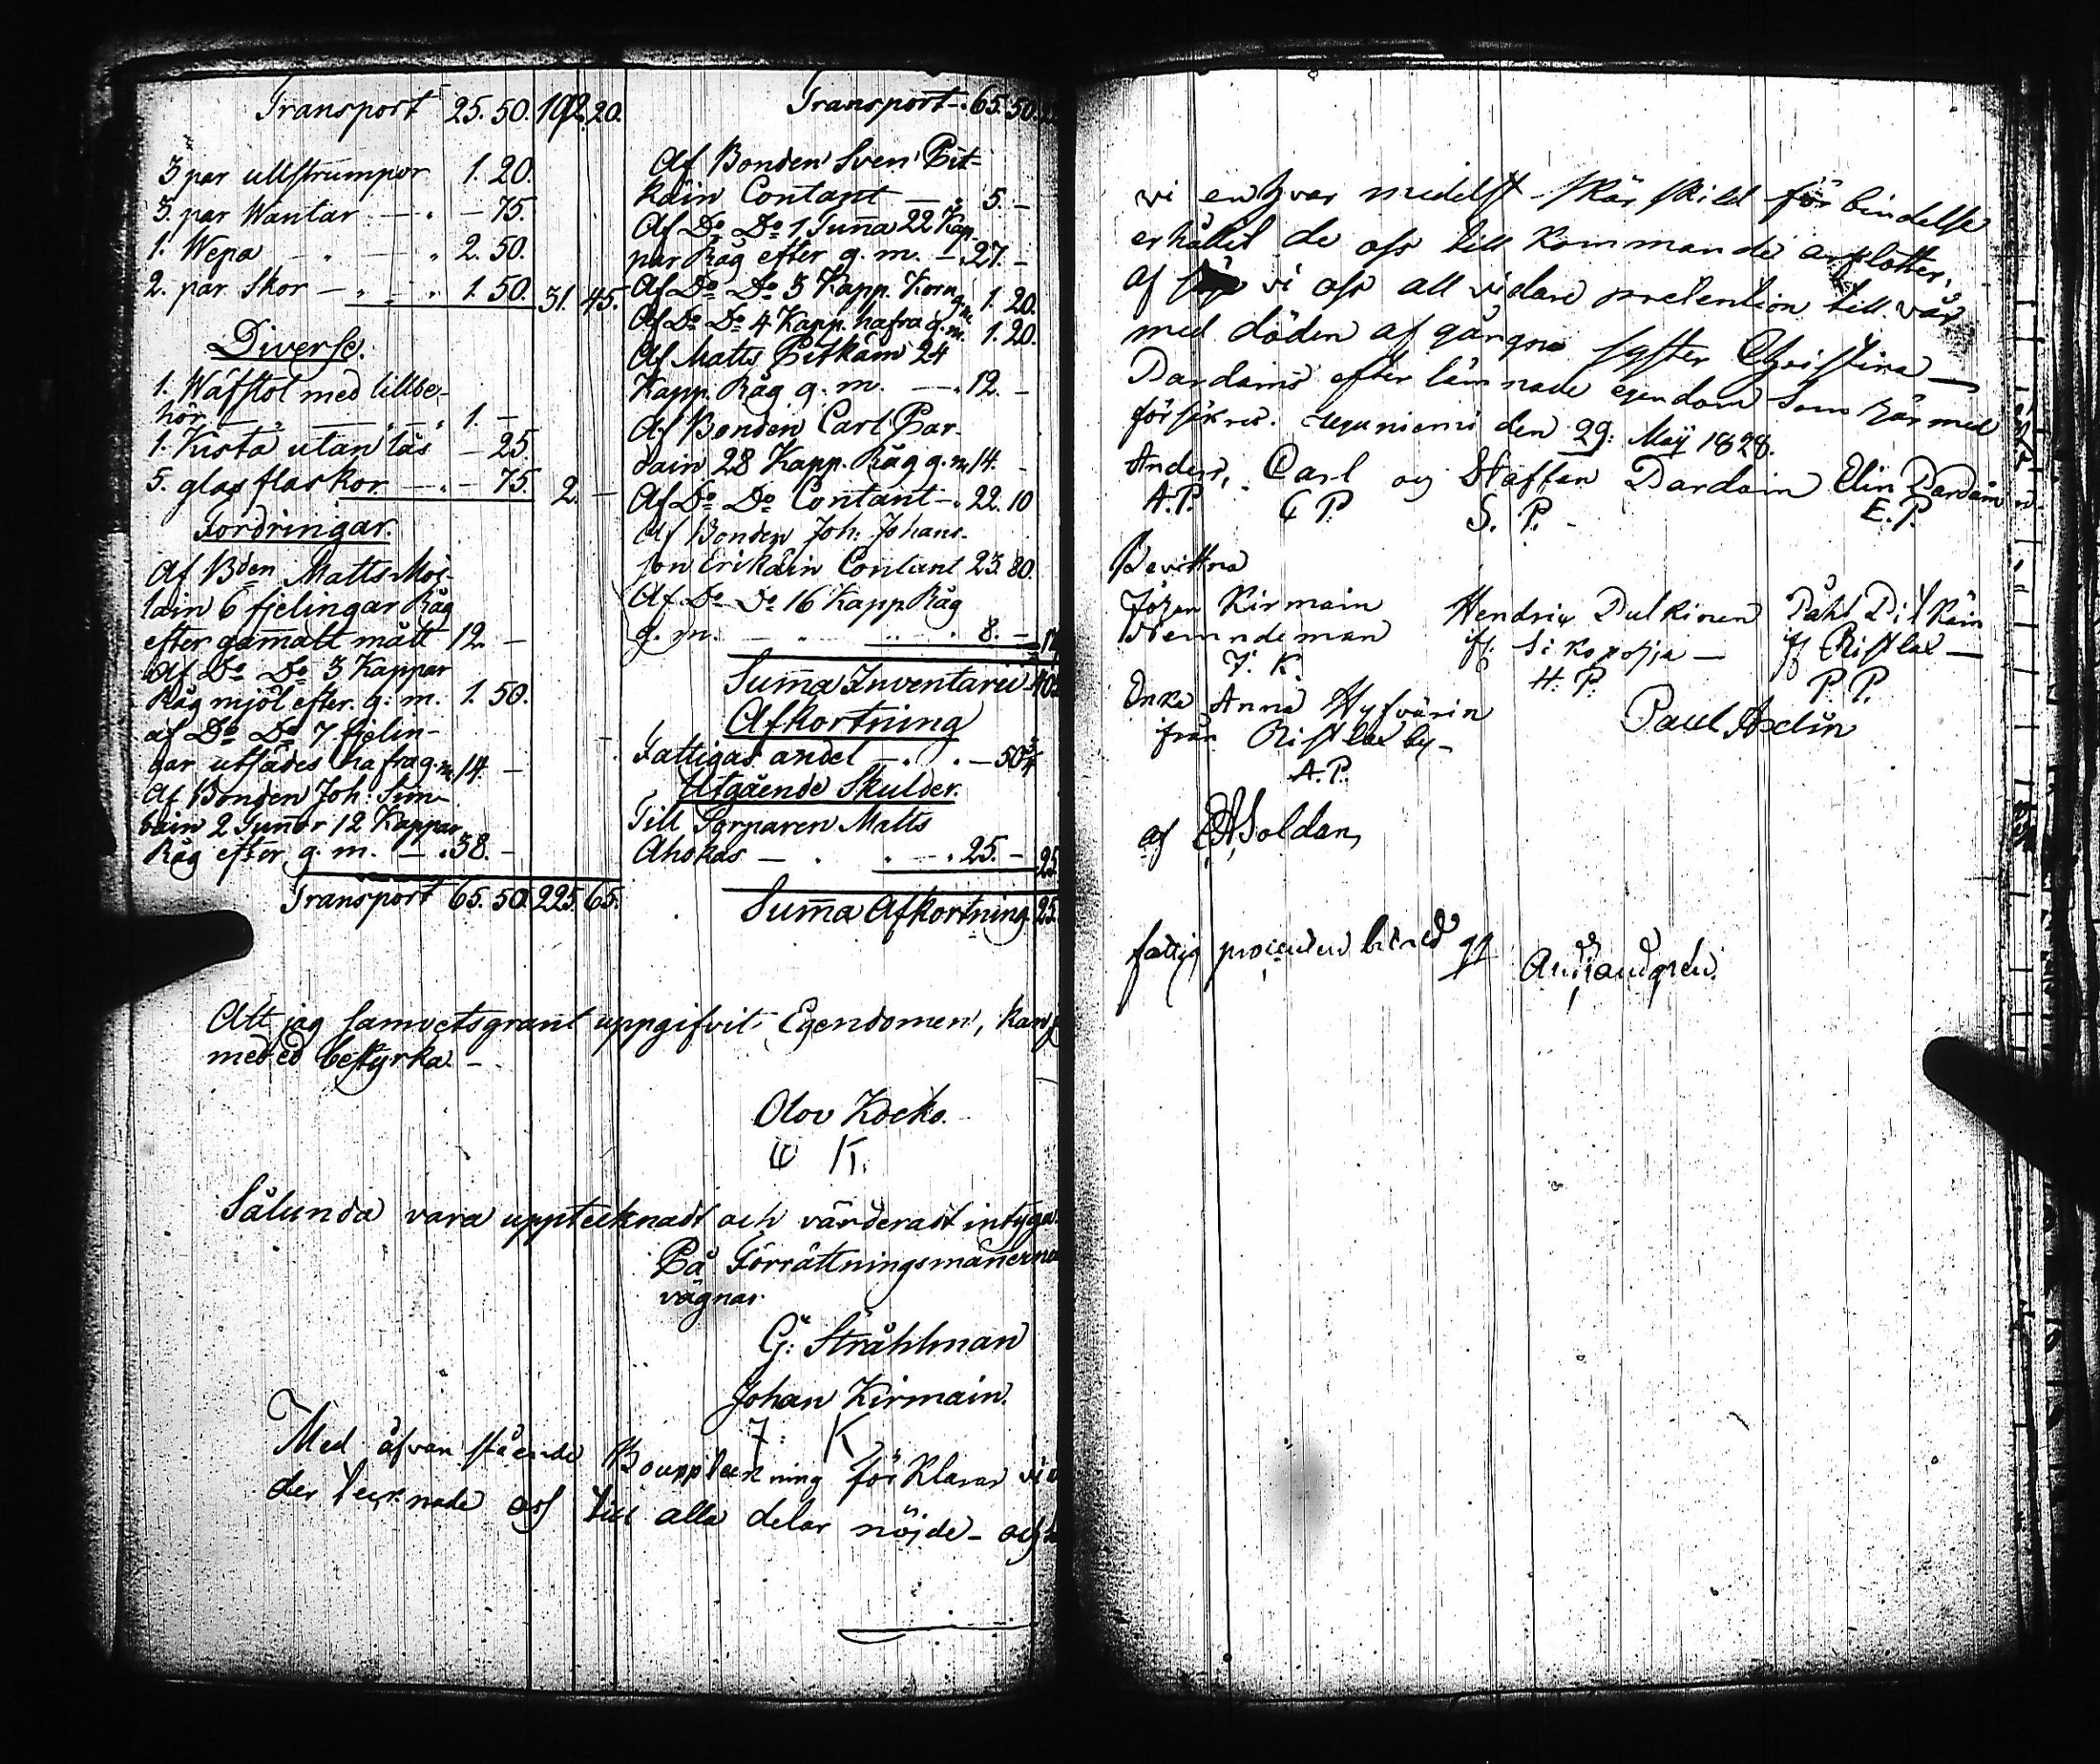 Transport 25. 50. 192. 20.
3 par ullstrumpor 1. 20.
3. par Wantar — — 75.
1. Wepa — — 2. 50.
2. par Skor — 1. 50. 31. 45.
Diverse.
1. Wäfstol med tillbe-
hör — 1. —
1. Kista utan lås — 25.
5. glasflaskor — — 75. 2. —
Fordringar.
Af Bden Matts Moi-
lain 6 fjelingar Råg
efter gamalt mått 12. —
Af Do Do 3 Kappar
Råg mjöl efter g: m. 1. 50.
af Do Do 7 fjelin-
gar utsädes hafra g. m. 14. —
Af Bonden Joh: Sim-
bain 2 Tunor 12 Kappar
Råg efter g. m. — 38. —
Transport 65. 50. 225. 65.
Transport 65. 50.
Af Bonden Sven Pit-
käin Contant — 5. —
Af Do Do 1 Tunna 22 Kap-
par Råg efter g. m. — 27. —
Af Do Do 3 Kapp. Korn g. m. 1. 20.
Af Do Do 4 Kapp. hafra g. m. 1. 20.
Af Matts Pitkäin 24
Kapp. Råg g. m. — 12. —
Af Bonden Carl Par-
dain 28 Kapp. Råg g. m. 14. —
Af Do Do Contant — 22. 10
Af Bonden Joh: Johans-
son Erikäin Contant 23. 80.
Af Do Do 16 Kapp Råg
g. m. — 8. —
Summa Inventarii
Afkortning
Fattigas andel — 50 3/4
Utgående Skulder.
Till Torparen Matts
Ahokas — 25. — 25
Summa Afkortning. 25.
Att jag samvetsgrant uppgifvit Egendomen, kan
med ed bestyrka. —
Olov Kocko.
K.
Sålunda vara upptecknadt och värderadt intyga
På Förrättningsmänernas
vägnar.
G: Stråhlman
Johan Kirmain.
J: K
Med åfvan stående Bouppteckning förklarar vi
der tecknade oss till alla delar nöjde – och
vi enhvar medelst Skär skild för bindelse
erhållit de oss till kommande arfslotter,
af vi oss all vidare pretention till vår
med döden af gångne syster Christina —
Pardains efter lämnade egendom som härmed
försäkres. den 29: Maÿ 1828.
Anders, Carl og Staffan Pardain Elin Pardain
A. P. C P. S. P. E. P.
Bevittna
Johan Kirmain Hendrix Pulkinen Påhl Pitkäin
Nemndeman if. Sikopohja — if Ristlax —
J. K. H. P. P. P.
Enka Anna Hyfvärin Paul Axelin
från Ristlax by —
A. P.
af Soldan,
fattig procenten